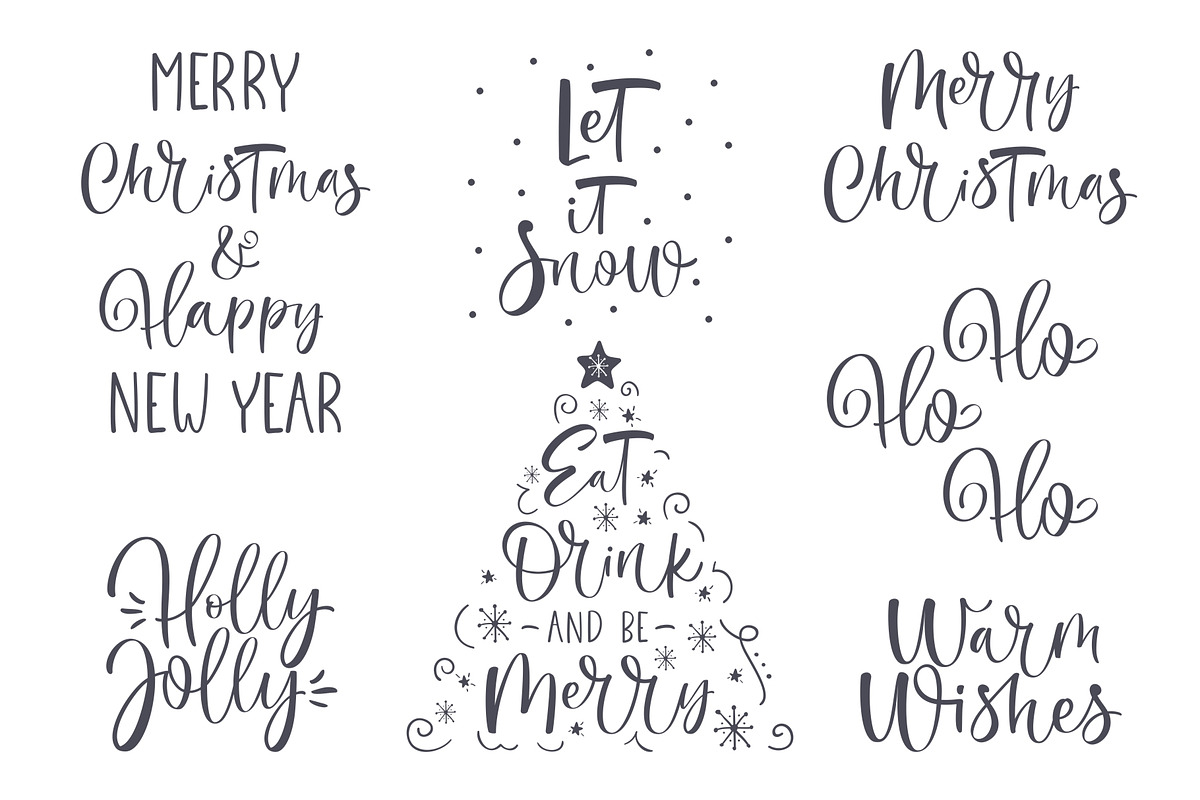 MERRY
Christmas
&
Happy
NEW YEAR
Holly
Jolly
LeT
iT
Snow
EaT
Drink
AND BE
Merry
Merry
ChrisTmas
Ho
Ho
Ho
Warm
Wishes